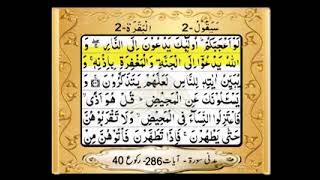 سَيَقُولُ-2 اَلْبَقَرَة-2
لَوْ اَعْجَبَكُمْ ۚ اُولٰٓئِكَ يَدْعُوْنَ اِلَى النَّارِ ۖۚ وَ
اللّٰهُ يَدْعُوْٓا اِلَى الْجَنَّةِ وَالْمَغْفِرَةِ بِاِذْنِهٖ ۚ وَ
يُبَيِّنُ اٰيٰتِهٖ لِلنَّاسِ لَعَلَّهُمْ يَتَذَكَّرُوْنَ ۧ وَ
يَسْـَٔلُوْنَكَ عَنِ الْمَحِيْضِ ؕ قُلْ هُوَ اَذًى ۙ
فَاعْتَزِلُوا النِّسَآءَ فِى الْمَحِيْضِ ۙ وَلَا تَقْرَبُوْهُنَّ
حَتّٰى يَطْهُرْنَ ۚ فَاِذَا تَطَهَّرْنَ فَاْتُوْهُنَّ مِنْ
مدنی سورة - آیات 286- رکوع 40